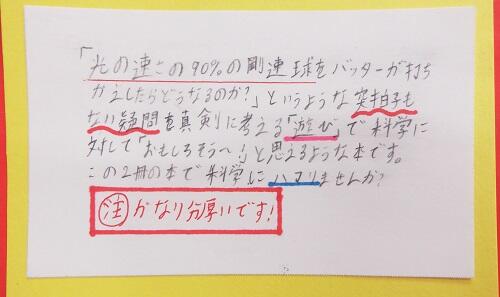 「光の速さの90%の剛速球をバッターが打ち
かえしたらどうなるのか?」というような突拍子も
ない疑問を真剣に考える「遊び」で科学に
対して「おもしろそう〜!」と思えるような本です。
この2冊の本で科学にハマりませんか?
注 かなり分厚いです!